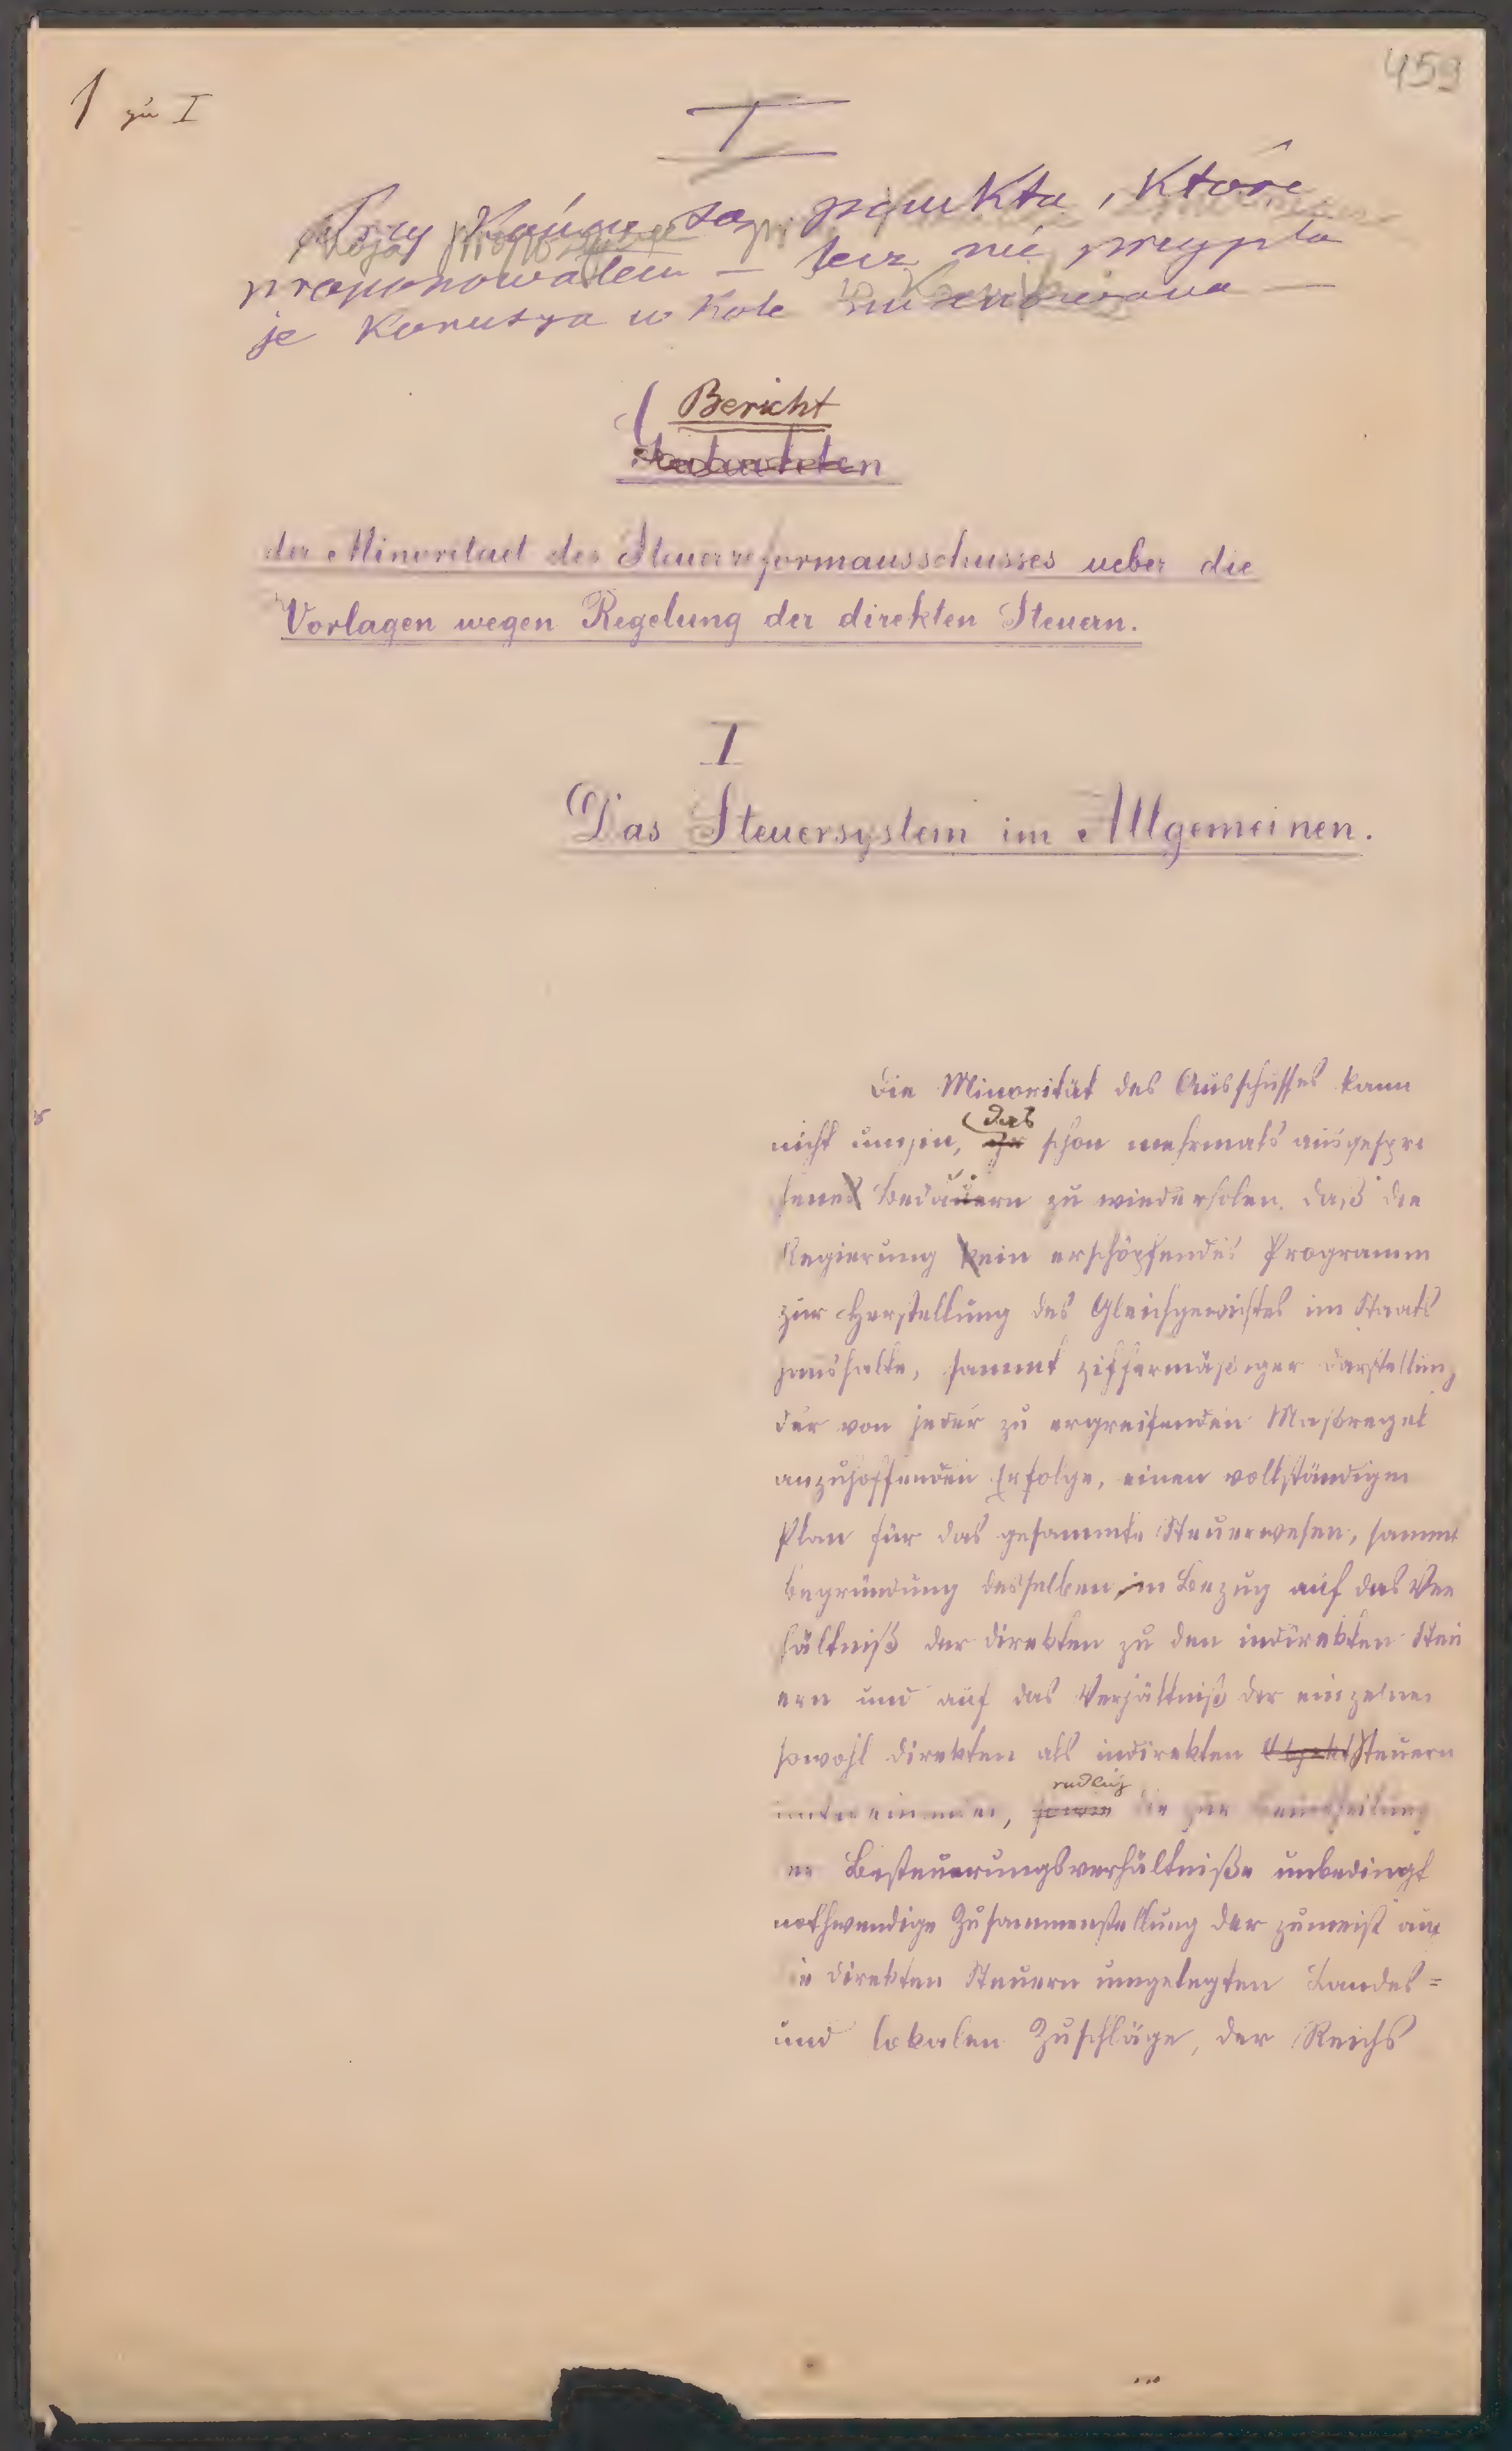 459
1 zu I
I
Przy Końcu są punkta, które
proponowałem — lecz nie przyjęła
je Komisya w Kole
Bericht
der Minoritaet des Steuerreformausschusses ueber die
Vorlagen wegen Regelung der direkten Steuern.
I
Das Steuersystem im Allgemeinen.
Die Minorität des Ausschusses kann
nicht umhin, das schon mehrmals ausgespro
chene Bedauern zu wiederholen, daß die
Regierung kein erschöpfendes Programm
zur Herstellung des Gleichgewichtes im Staats
haushalte, sammt ziffermäßiger Darstellung
der von jeder zu ergreifenden Maßregel
anzuhoffenden Erfolge, einen vollständigen
Plan für das gesammte Steuerwesen, sammt
Begründung desselben in Bezug auf das Ver
hältniß der direkten zu den indirekten Steu
ern und auf das Verhältniß der einzelnen
sowohl direkten als indirekten Objekt Steuern
endlich
untereinander, sowie die zur Beurtheilung
der Besteuerungsverhältniße unbedingt
nothwendige Zusammenstellung der zumeist auf
die direkten Steuern umgelegten Landes=
und lokalen Zuschläge, der Reichs